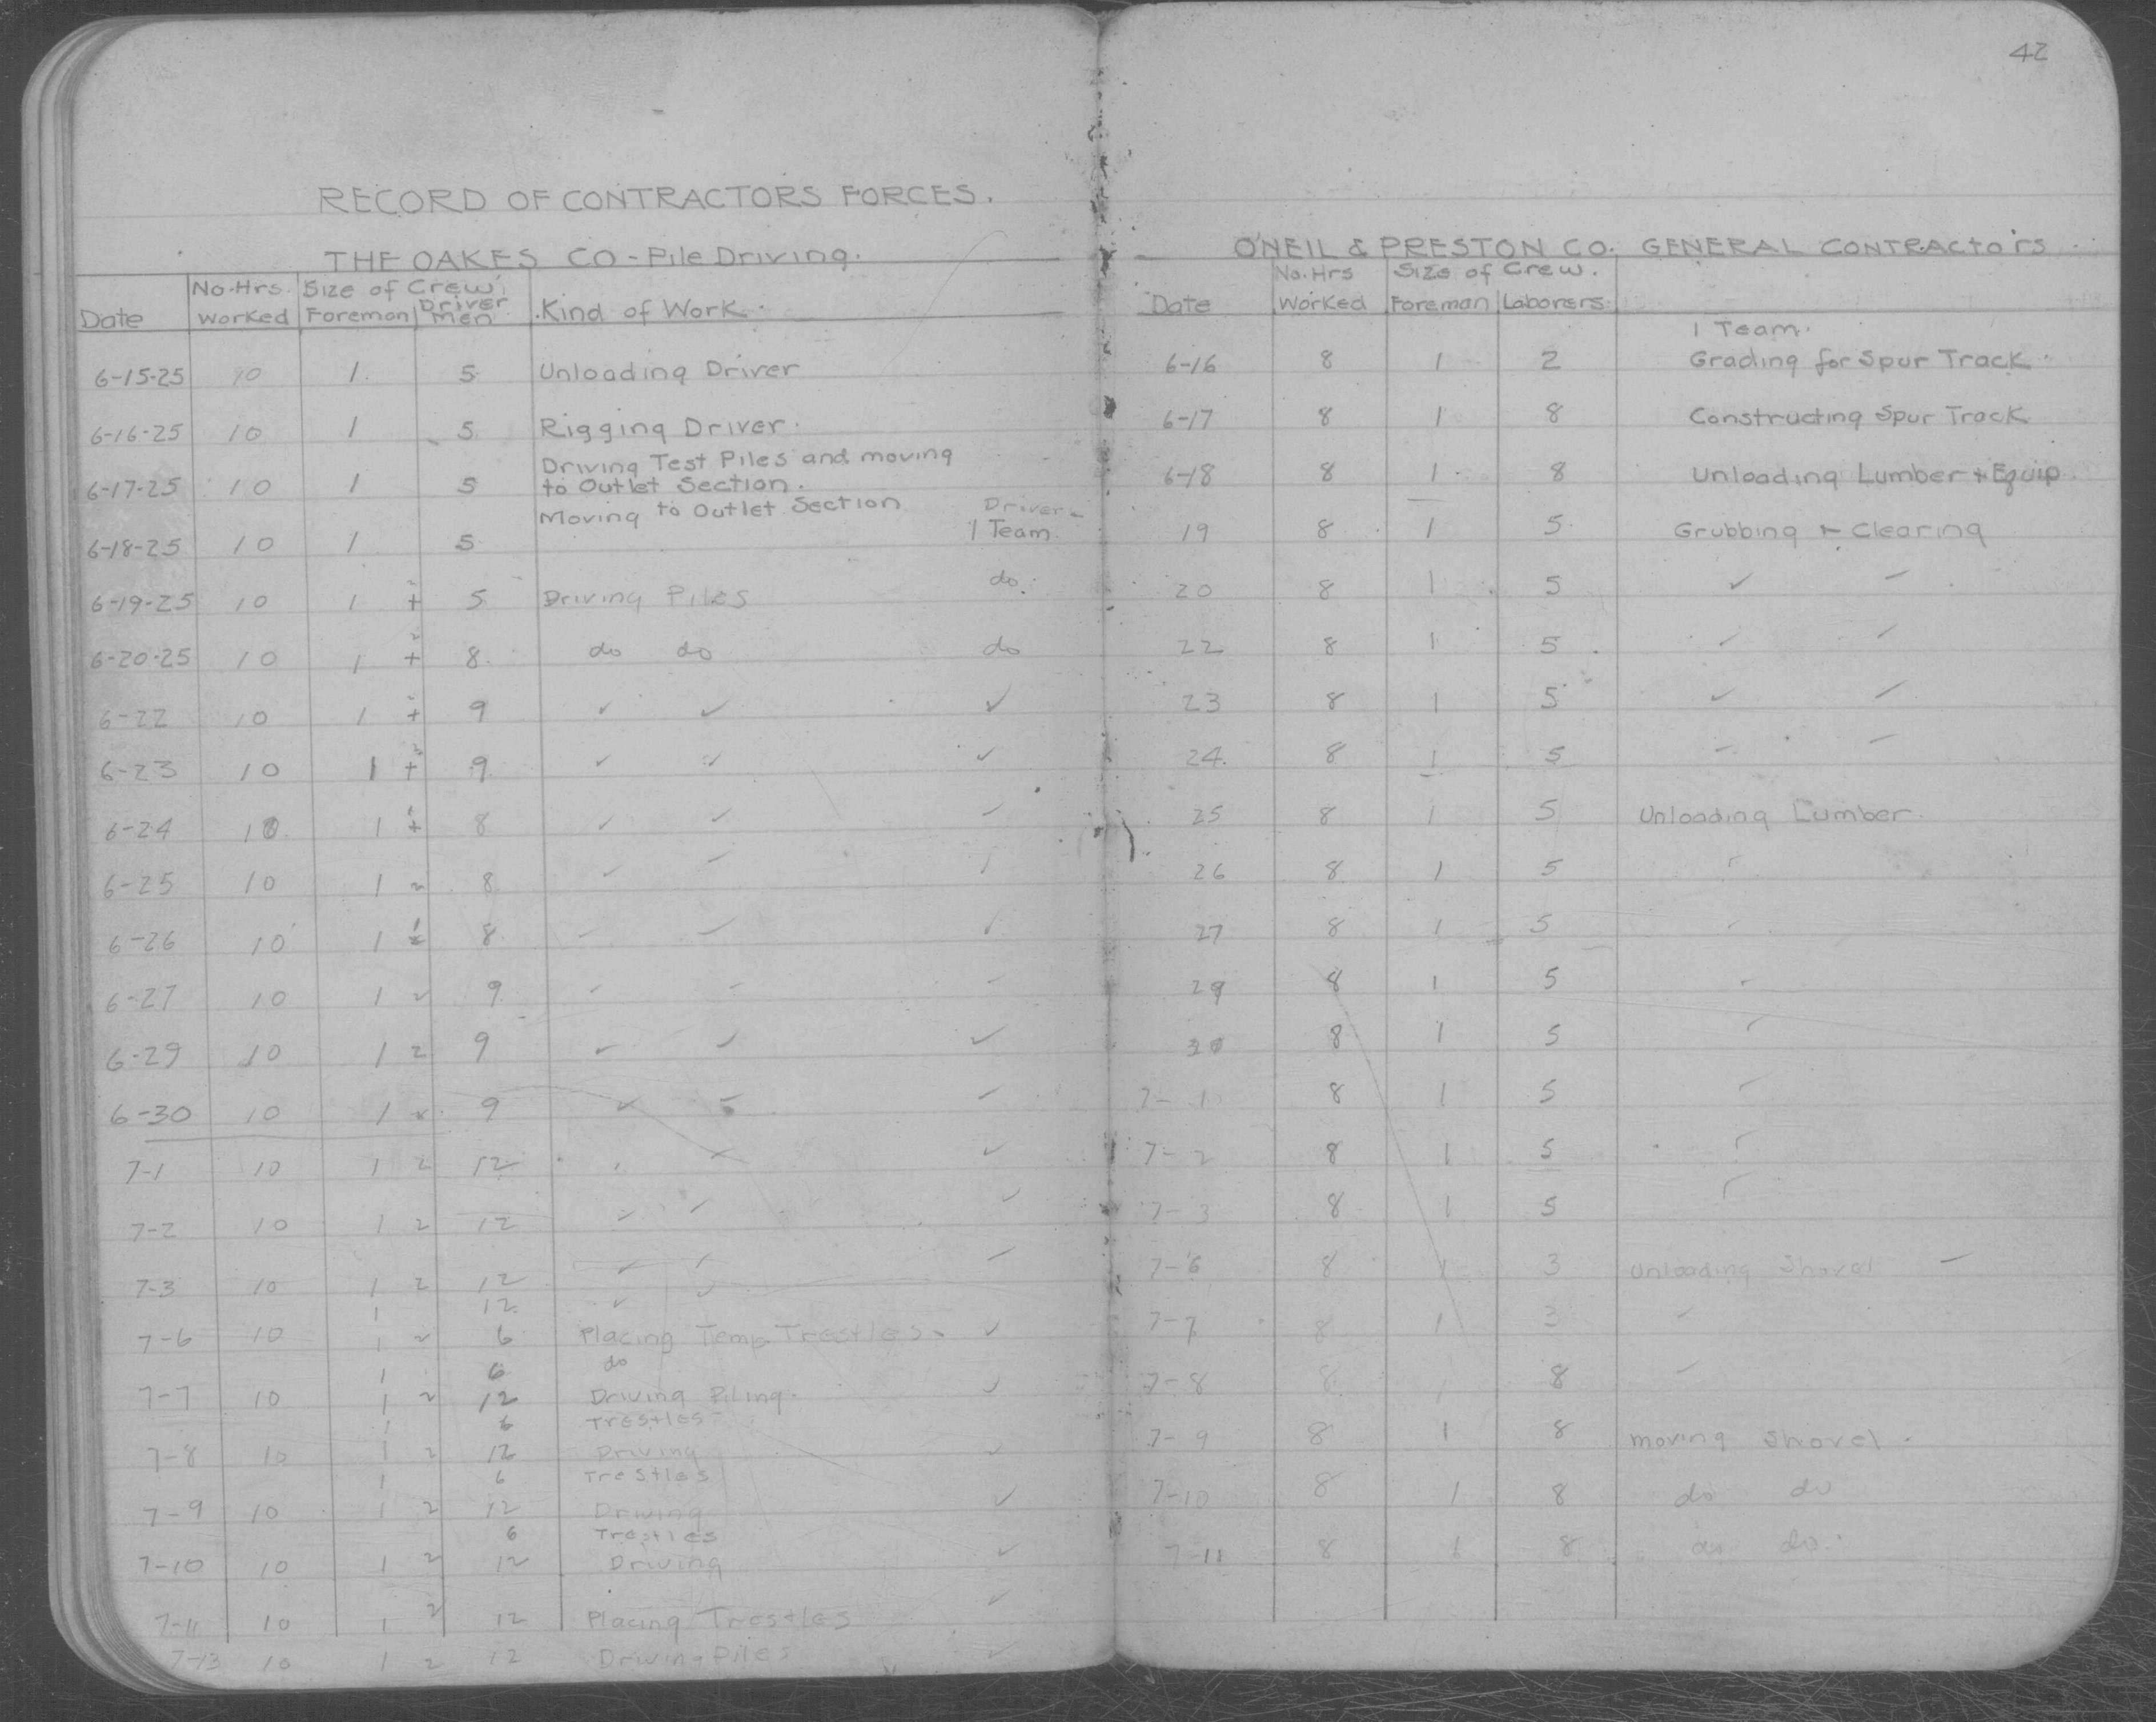 42
RECORD OF CONTRACTORS FORCES.
THE OAKES CO - Pile Driving.
Date No. Hrs. Worked Size of Crew Foreman Driver Men Kind of Work.
6-15-25 10 1 5 Unloading Driver
6-16-25 10 1 5 Rigging Driver.
6-17-25 10 1 5 Driving Test Piles and moving
to Outlet Section.
6-18-25 10 1 5 Moving to Outlet Section Driver - 1 Team
6-19-25 10 1 + 2 5 Driving Piles do.
6-20-25 10 1 + 2 8 do do do
6-22 10 1 + 2 9 ✓ ✓ ✓
6-23 10 1 + 2 9 ✓ ✓ ✓
6-24 10 1 + 8 ✓ ✓ ✓
6-25 10 1 2 8 ✓ ✓ ✓
6-26 10 1 8 ✓ ✓ ✓
6-27 10 1 2 9 ✓ ✓ ✓
6-29 10 1 2 9 ✓ ✓ ✓
6-30 10 1 2 9 ✓ ✓ ✓
7-1 10 1 2 12 ✓ ✓ ✓
7-2 10 1 2 12 ✓ ✓ ✓
7-3 10 1 2 12 ✓ ✓ ✓
1 12 ✓ ✓
7-6 10 1 2 6 Placing Temp. Trestles. ✓
1 6 do
7-7 10 1 2 12 Driving Piling. ✓
1 6 Trestles
7-8 10 1 2 12 Driving ✓
1 6 Trestles
7-9 10 1 2 12 Driving ✓
6 Trestles
7-10 10 1 2 12 Driving ✓
7-11 10 1 2 12 Placing Trestles ✓
7-13 10 1 2 12 Driving Piles ✓
O'NEIL & PRESTON CO. GENERAL CONTRACTORS
Date No. Hrs Worked Size of Crew. Foreman Laborers.
1 Team.
6-16 8 1 2 Grading for Spur Track.
6-17 8 1 8 Constructing Spur Track
6-18 8 1 8 Unloading Lumber + Equip.
19 8 1 5 Grubbing + Clearing
20 8 1 5 ✓ ✓
22 8 1 5 ✓ ✓
23 8 1 5 ✓ ✓
24 8 1 5 ✓ ✓
25 8 1 5 Unloading Lumber.
26 8 1 5 ✓
27 8 1 5 ✓
29 8 1 5 ✓
30 8 1 5 ✓
7-1 8 1 5 ✓
7-2 8 1 5 ✓
7-3 8 1 5 ✓
7-6 8 1 3 Unloading Shovel
7-7 8 1 3 ✓
7-8 8 1 8 ✓
7-9 8 1 8 moving Shovel.
7-10 8 1 8 do do
7-11 8 1 8 do do.